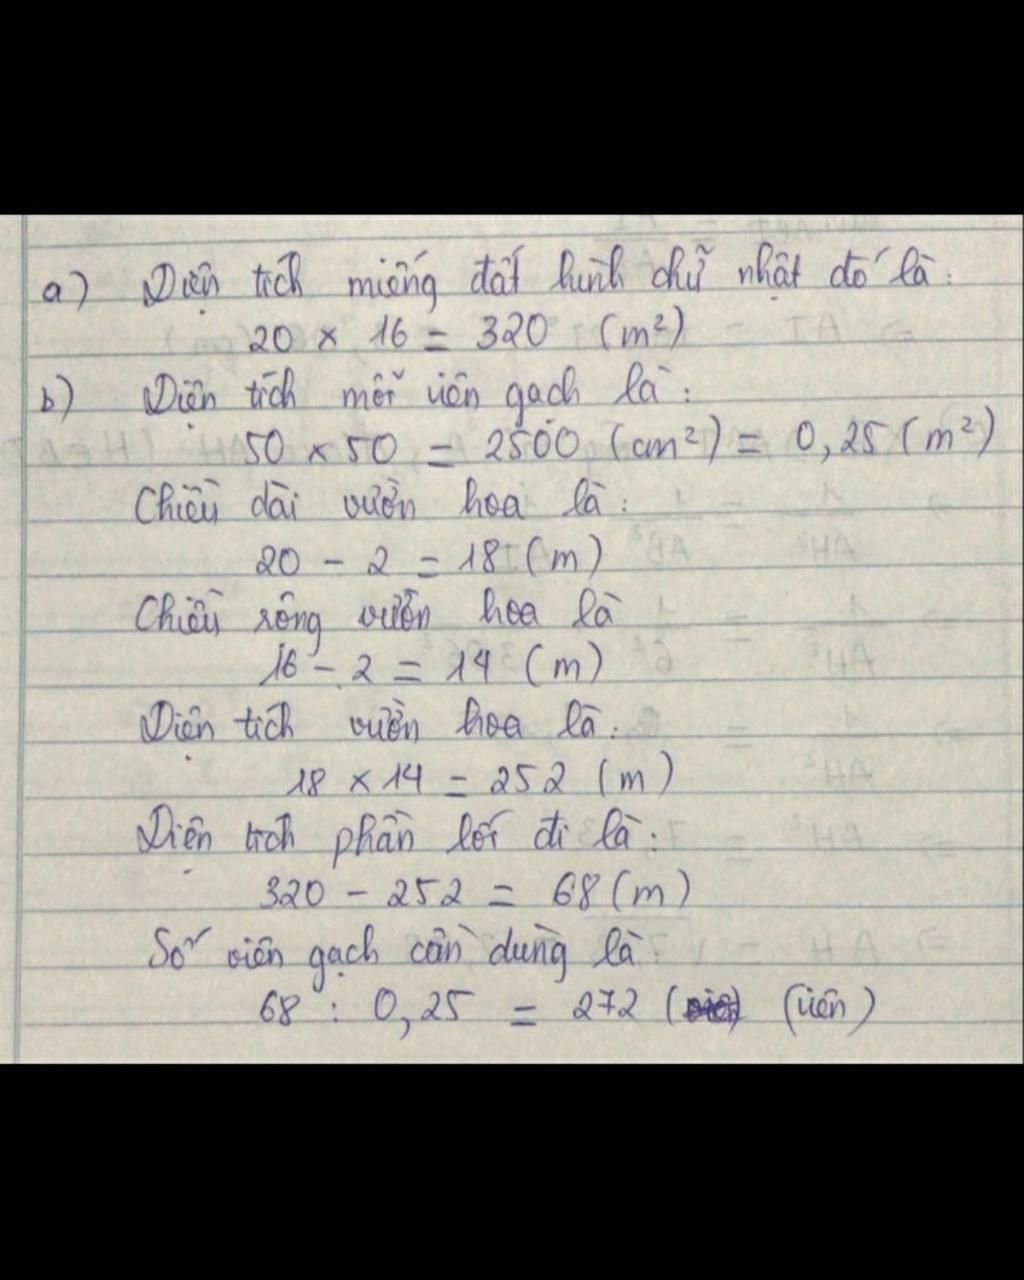 a) Diện tích miếng đất hình chữ nhật đó là:
20 × 16 = 320 (m²)
b) Diện tích mỗi viên gạch là:
50 × 50 = 2500 (cm²) = 0,25 (m²)
Chiều dài vườn hoa là:
20 - 2 = 18 (m)
Chiều rộng vườn hoa là
16 - 2 = 14 (m)
Diện tích vườn hoa là:
18 × 14 = 252 (m)
Diện tích phần lối đi là:
320 - 252 = 68 (m)
Số viên gạch cần dùng là
68 : 0,25 = 272 (viên)